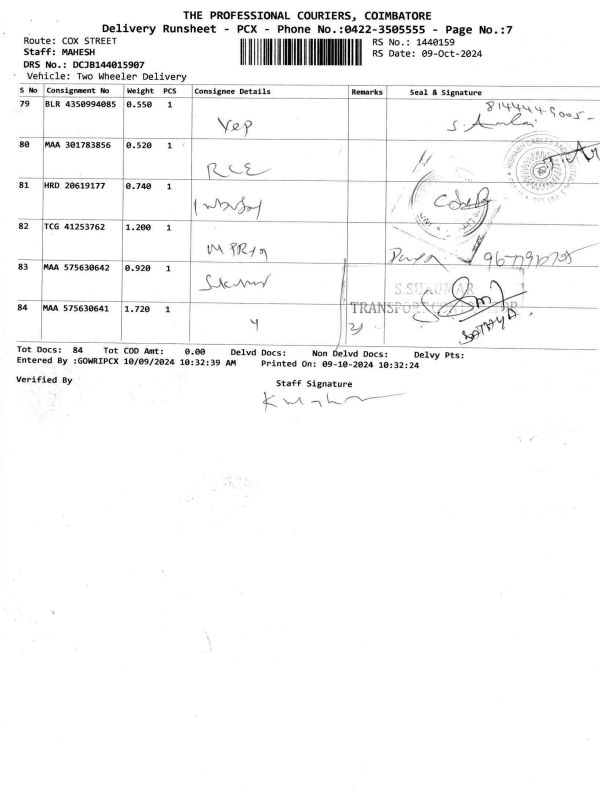 THE PROFESSIONAL COURIERS, COIMBATORE
Delivery Runsheet - PCX - Phone No.:0422-3505555 - Page No.:7
Route: COX STREET RS No.: 1440159
Staff: MAHESH RS Date: 09-Oct-2024
DRS No.: DCJB144015907
Vehicle: Two Wheeler Delivery
S No Consignment No Weight PCS Consignee Details Remarks Seal & Signature
79 BLR 4350994085 0.550 1
80 MAA 301783856 0.520 1
RCE
81 HRD 20619177 0.740 1
82 TCG 41253762 1.200 1
83 MAA 575630642 0.920 1
S.SUKUMAR
84 MAA 575630641 1.720 1 TRANSPORT
Tot Docs: 84 Tot COD Amt: 0.00 Delvd Docs: Non Delvd Docs: Delvy Pts:
Entered By :GOWRIPCX 10/09/2024 10:32:39 AM Printed On: 09-10-2024 10:32:24
Verified By Staff Signature